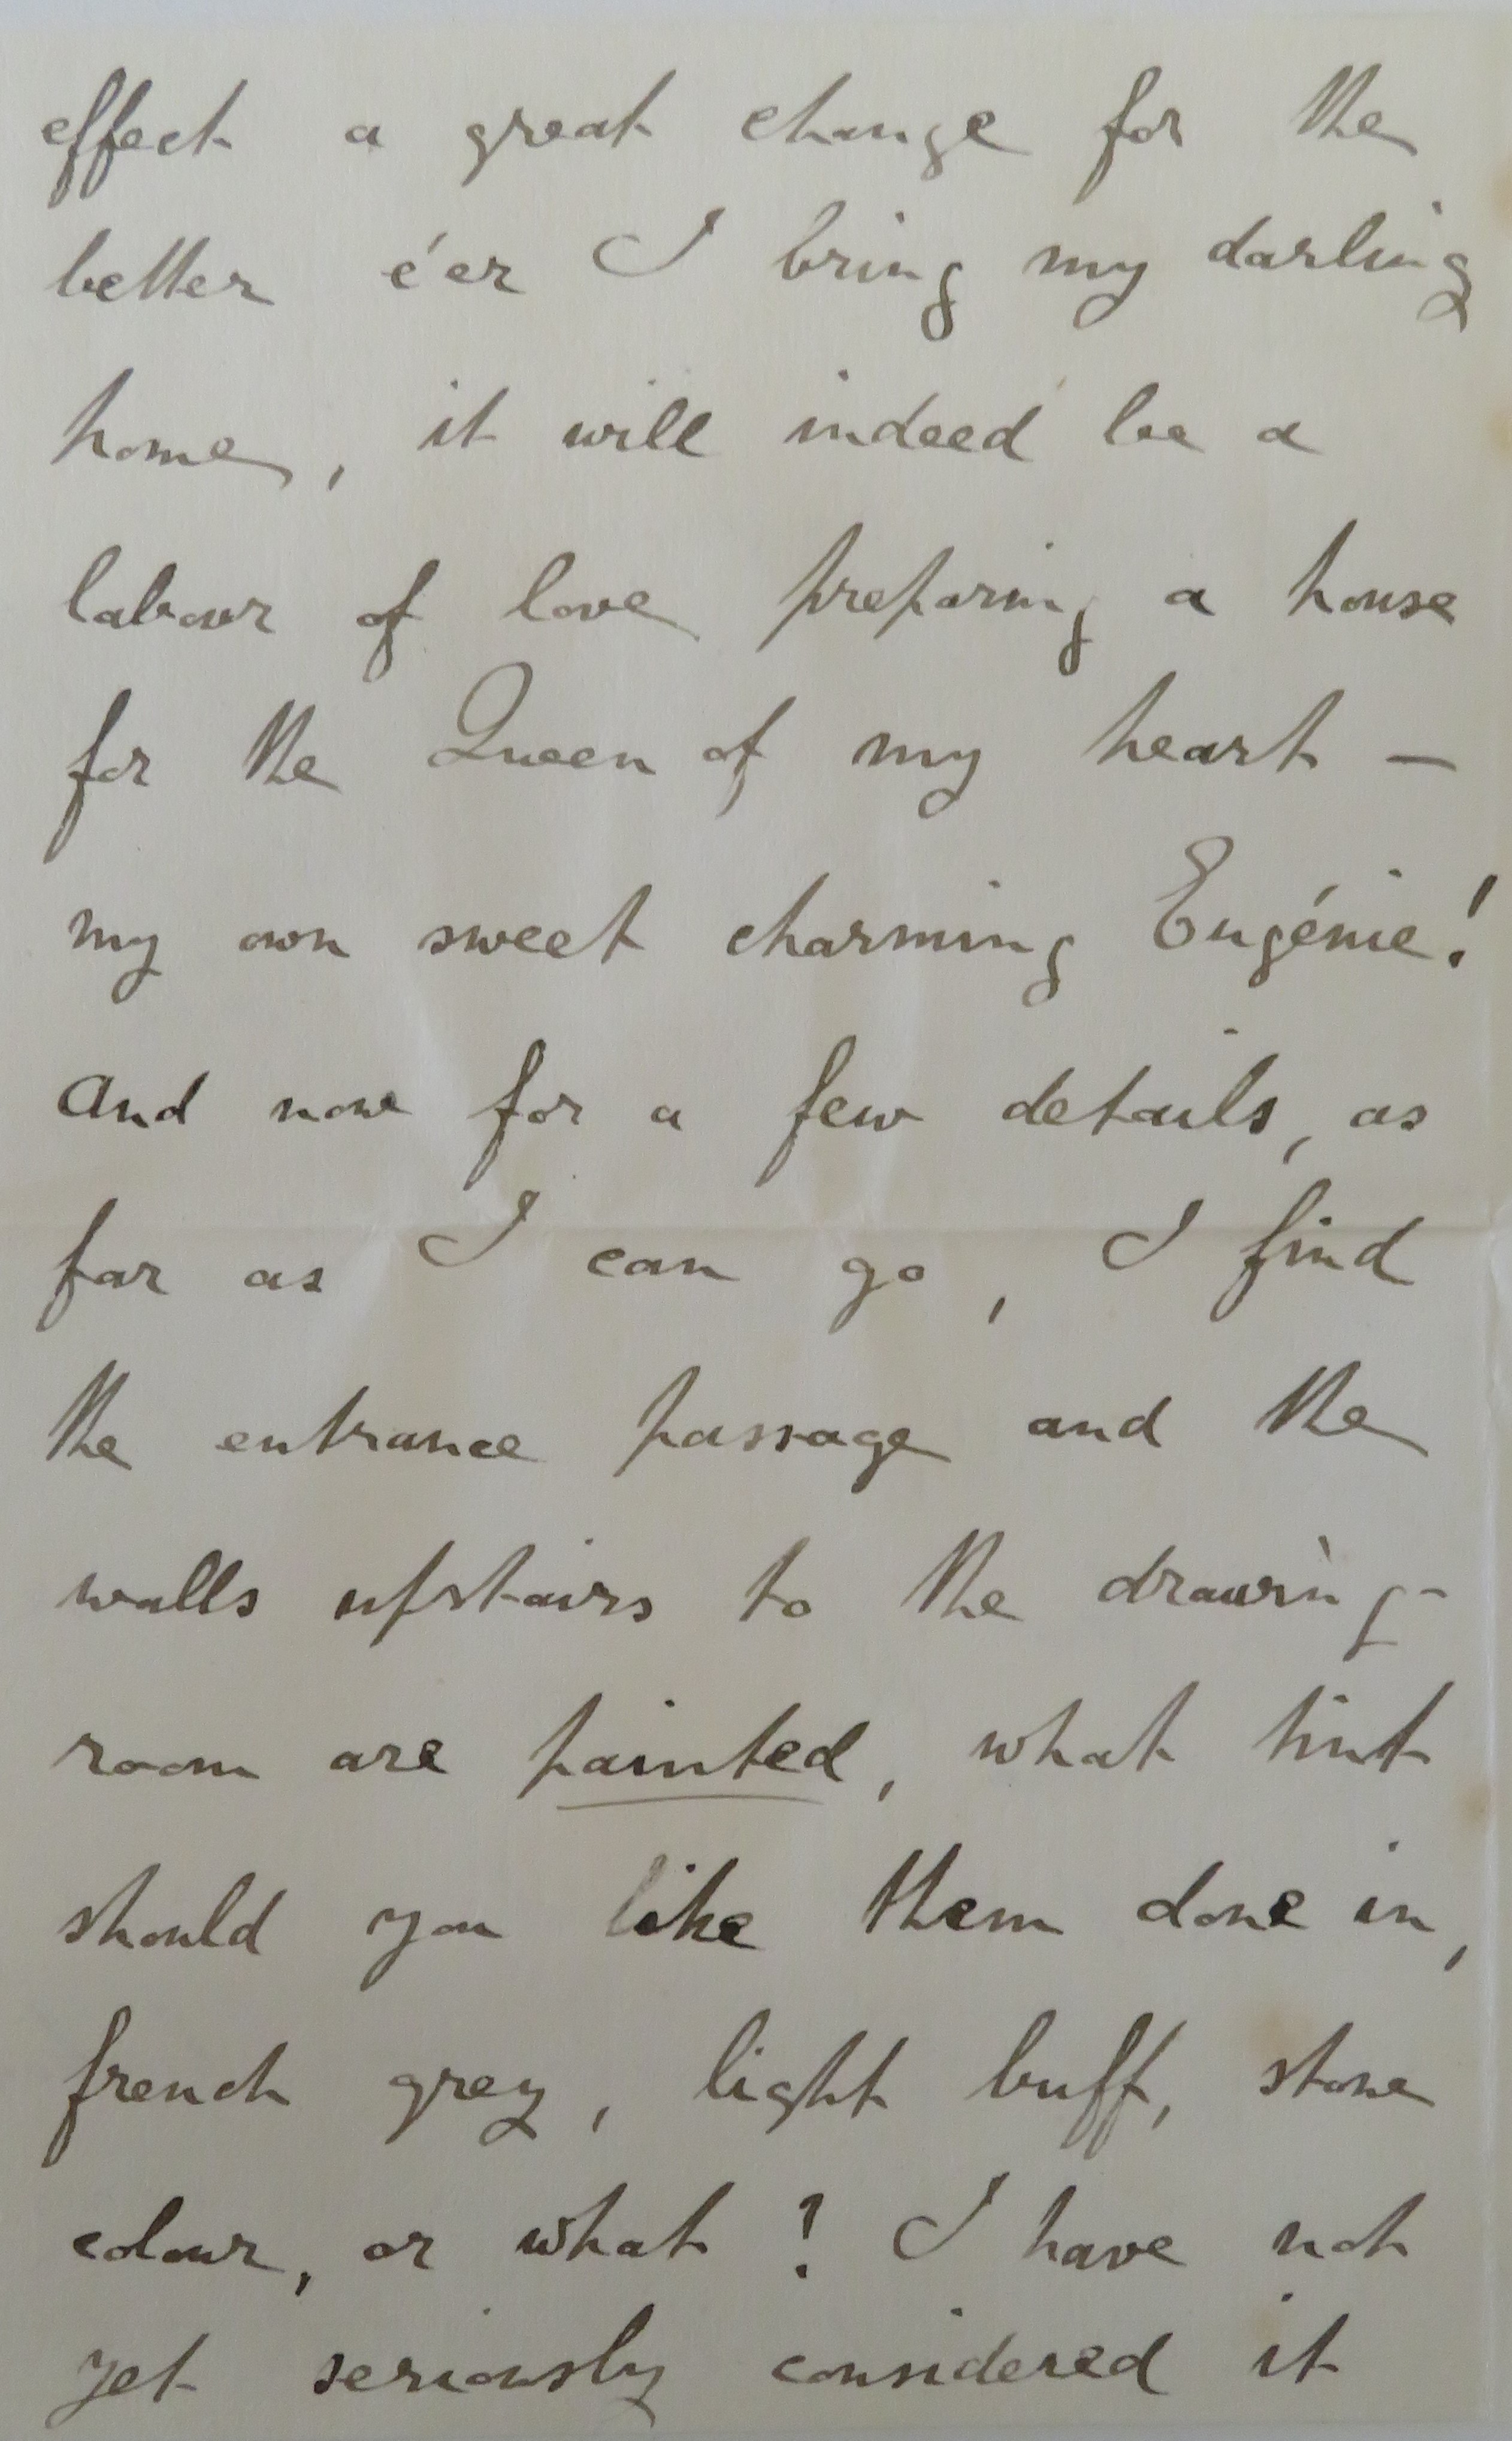 effect a great change for the
better é'er I bring my darling
home, it will indeed be a
labour of love preparing a house
for the Queen of my heart —
my own sweet charming Eugénie!
And now for a few details, as
far as I can go, I find
the entrance passage and the
walls upstairs to the drawing-
room are painted, what tint
should you like them done in,
french grey, light buff, stone
colour, or what? I have not
yet seriously considered it